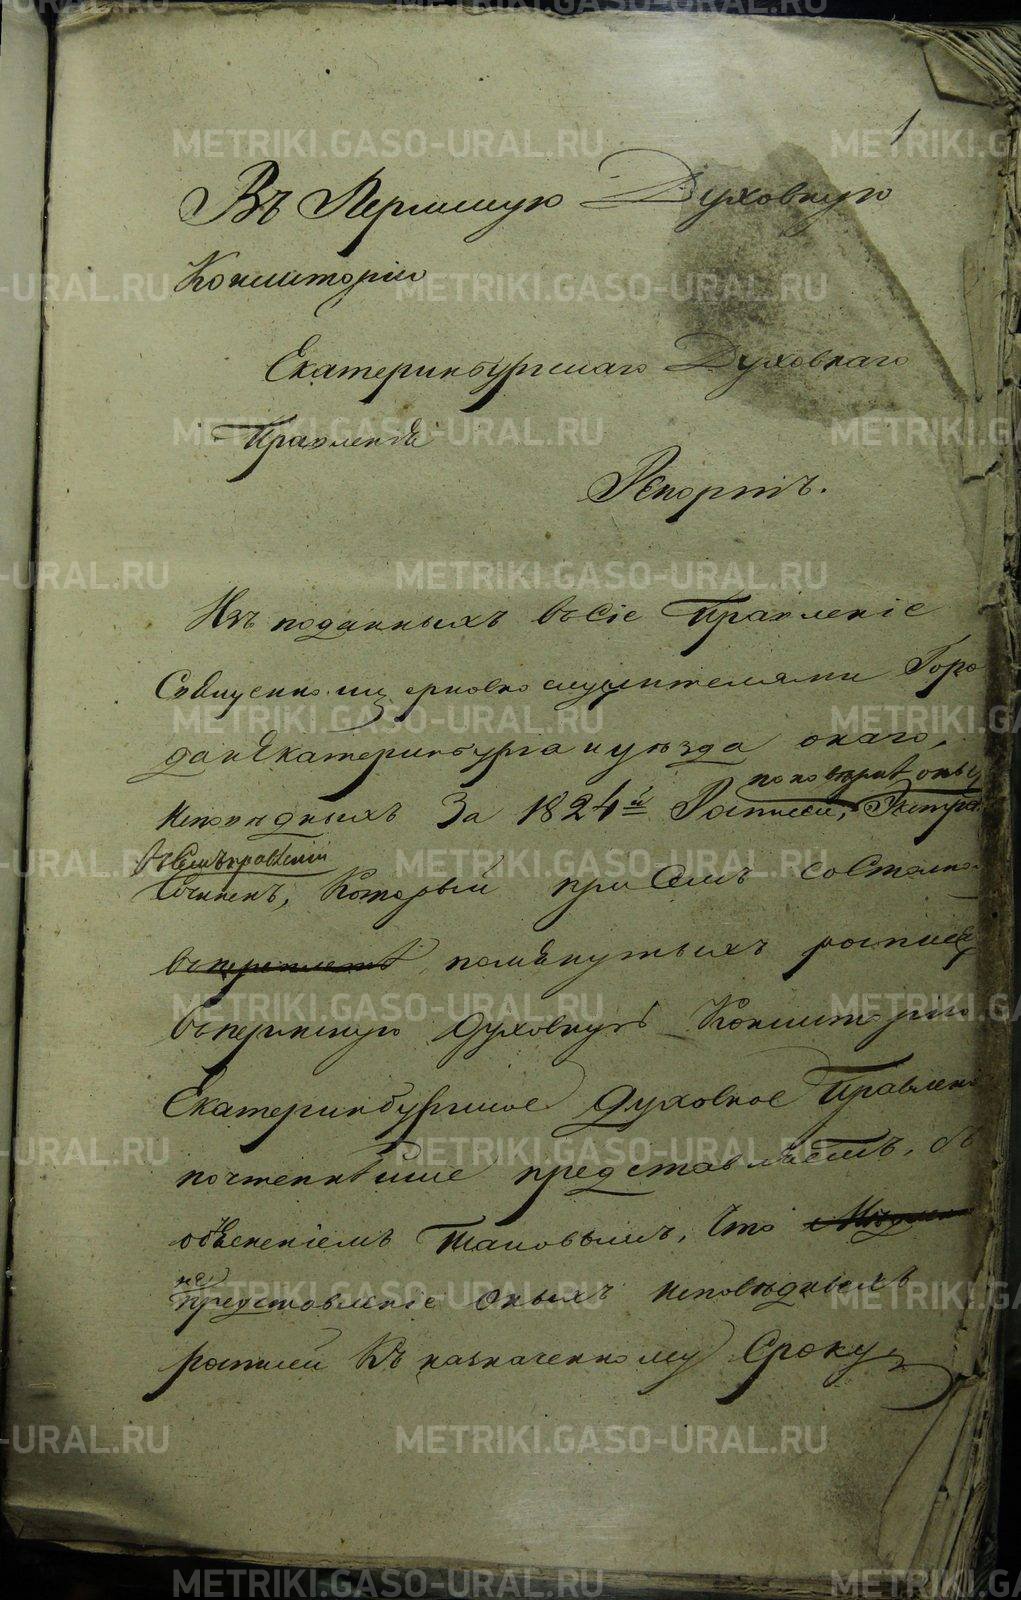 1
Въ Пермскую Духовную
Консисторію
Екатеринбургскаго Духовнаго
Правленія
Репортъ.
Изъ поданныхъ въ сіе Правленіе
Священно и церковно служителями Горо
да Екатеринбурга и уезда онаго,
по поверке оныхъ
исповедныхъ За 1824й Росписей, Экстра
въ семъ правленіи
Сочиненъ, Который при Семъ
помянутыхъ росписей
въ пермскую Духовную Консисторію
Екатеринбургское Духовное Правлені
почтеннейше представляетъ, съ
объесненіемъ таковымъ, что
не
представленіе оныхъ исповедныхъ
росписей Къ назначенному Сроку
METRIKI.GASO-URAL.RU